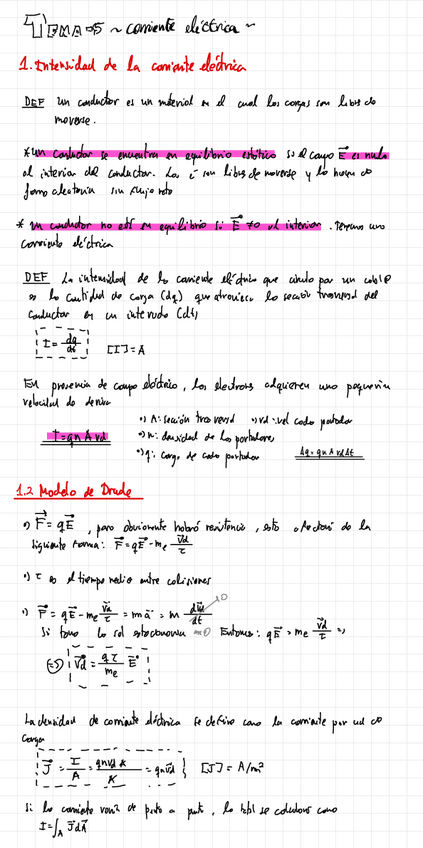 TEMA 05 ~ corriente eléctrica ~
1. Intensidad de la corriente eléctrica
DEF un conductor es un material en el cual las cargas son libres de
moverse.
* un conductor se encuentra en equilibrio estático si el campo E⃗ es nulo
al interior del conductor. Los e⁻ son libres de moverse y lo hacen de
forma aleatoria sin flujo neto
* un conductor no está en equilibrio si E⃗ ≠ 0 al interior. Tenemos una
corriente eléctrica
DEF La intensidad de la corriente eléctrica que circula por un cable
es la cantidad de carga (dq) que atraviesa la sección transversal del
conductor en un intervalo (dt)
I = dq/dt [I] = A
En presencia de campo eléctrico, los electrones adquieren una pequeña
velocidad de deriva
•) A: sección transversal •) vd: vel cada portador
I = qnAvd •) n: densidad de los portadores
•) q: carga de cada portador Δq = qnAvdΔt
1.2 Modelo de Drude
•) F⃗ = qE⃗, pero obviamente habrá resistencia, esto afectará de la
siguiente forma: F⃗ = qE⃗ - me v⃗d/τ
•) τ es el tiempo medio entre colisiones
•) F⃗ = qE⃗ - me v⃗d/τ = ma⃗ = m dv⃗d/dt → 0
Si tomo la sol estacionaria = 0 Entonces: qE⃗ = me v⃗d/τ =>
<=> v⃗d = qτ/me E⃗
La densidad de corriente eléctrica se define como la corriente por ud de
carga
J⃗ = I/A = qnvdA/A = qnv⃗d [J] = A/m²
Si la corriente varía de punto a punto, la total se calculará como
I = ∫A J⃗dA⃗